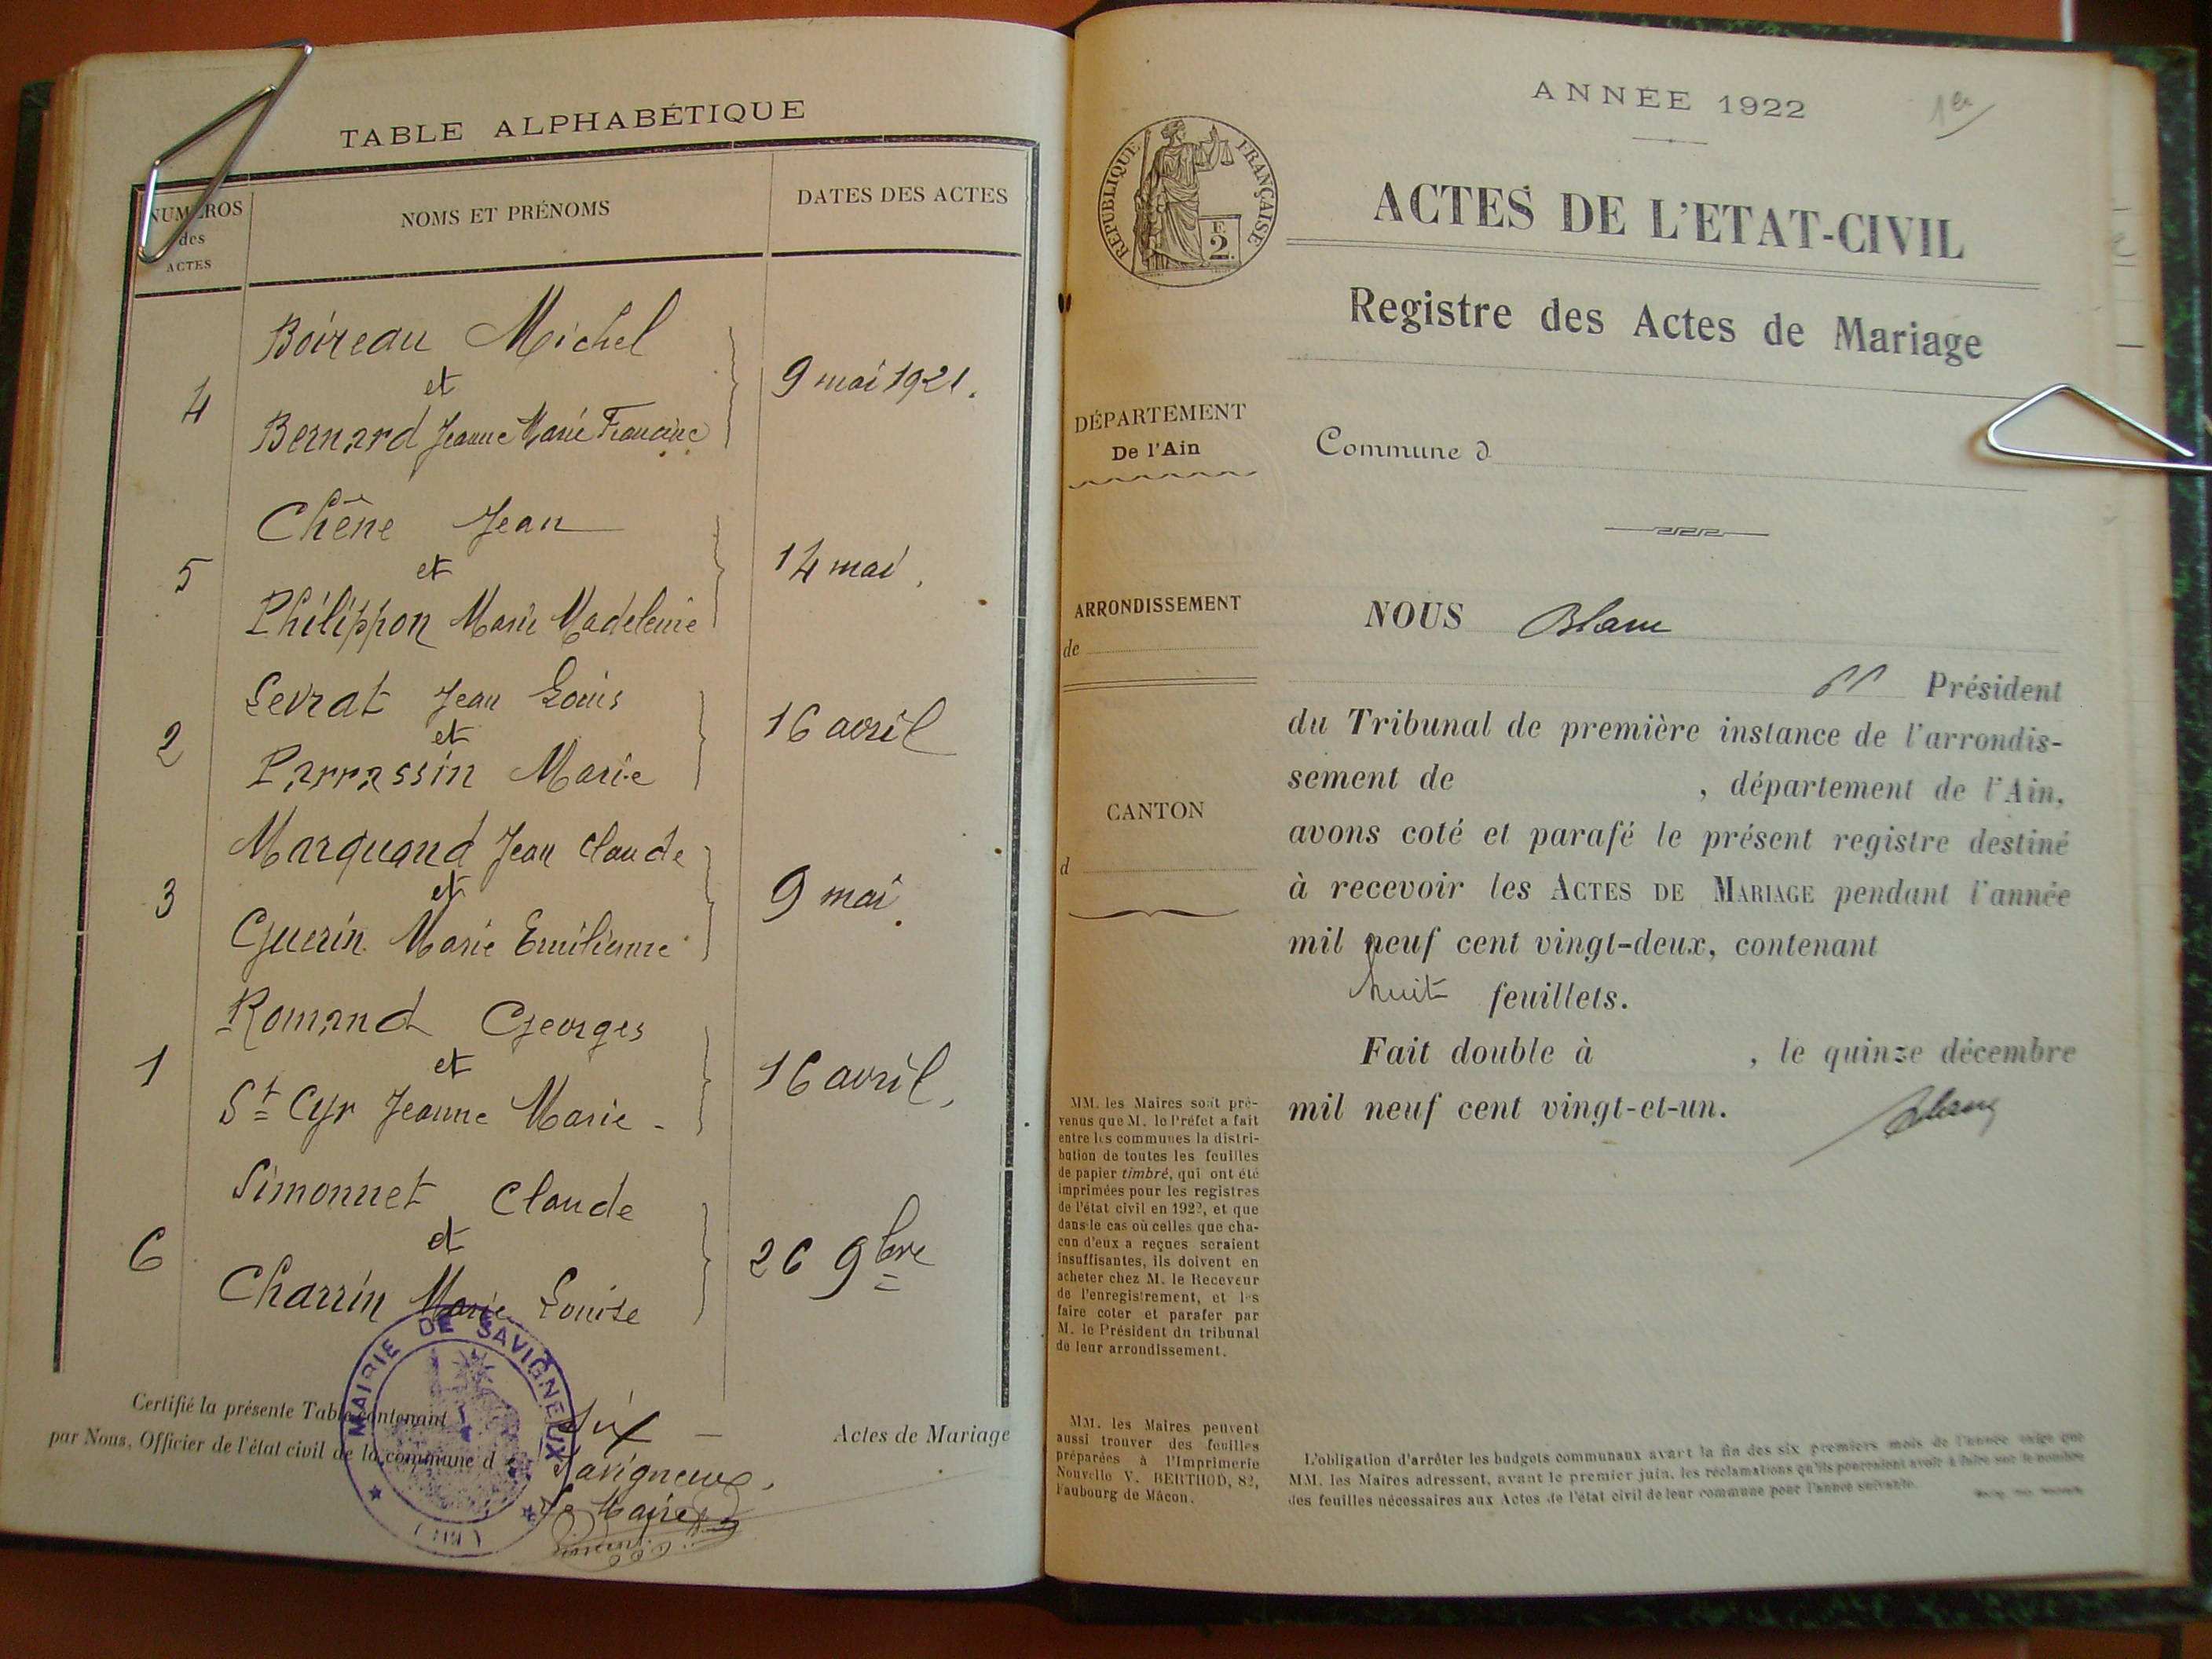 TABLE ALPHABÉTIQUE
NUMÉROS
des
ACTES
NOMS ET PRÉNOMS
DATES DES ACTES
Boireau Michel
et
4
9 mai 1921.
Bernard Jeanne Marie Francine
Chêne Jean
et
5
14 mai.
Philippon Marie Madeleine
Sevrat Jean Louis
et
2
16 avril
Parrassin Marie
Marquand Jean Claude
et
3
9 mai.
Guerin Marie Emilienne
Romand Georges
et
1
16 avril.
St Cyr Jeanne Marie -
Simonnet Claude
et
6
26 9bre
Charrin Marie Louise
MAIRIE DE SAVIGNEUX
Certifié la présente Table contenant Six — Actes de Mariage
par Nous, Officier de l'état civil de la commune d Savigneux,
Le Maire
ANNÉE 1922
1er
RÉPUBLIQUE FRANÇAISE
F.
2.
ACTES DE L'ETAT-CIVIL
Registre des Actes de Mariage
DÉPARTEMENT
De l'Ain
Commune d
ARRONDISSEMENT
de
CANTON
d
NOUS Blanc
Président
du Tribunal de première instance de l'arrondis-
sement de , département de l'Ain,
avons coté et parafé le présent registre destiné
à recevoir les ACTES DE MARIAGE pendant l'année
mil neuf cent vingt-deux, contenant
huit feuillets.
Fait double à , le quinze décembre
mil neuf cent vingt-et-un.
Blanc
MM. les Maires sont pré-
venus que M. le Préfet a fait
entre les communes la distri-
bution de toutes les feuilles
de papier timbré, qui ont été
imprimées pour les registres
de l'état civil en 1922, et que
dans le cas où celles que cha-
cun d'eux a reçues seraient
insuffisantes, ils doivent en
acheter chez M. le Receveur
de l'enregistrement, et les
faire coter et parafer par
M. le Président du tribunal
de leur arrondissement.
MM. les Maires peuvent
aussi trouver des feuilles
préparées à l'Imprimerie
Nouvelle V. BERTHOD, 82,
Faubourg de Mâcon.
L'obligation d'arrêter les budgets communaux avant la fin des six premiers mois de l'année exige que
MM. les Maires adressent, avant le premier juin, les réclamations qu'ils pourraient avoir à faire sur le nombre
des feuilles nécessaires aux Actes de l'état civil de leur commune pour l'année suivante.